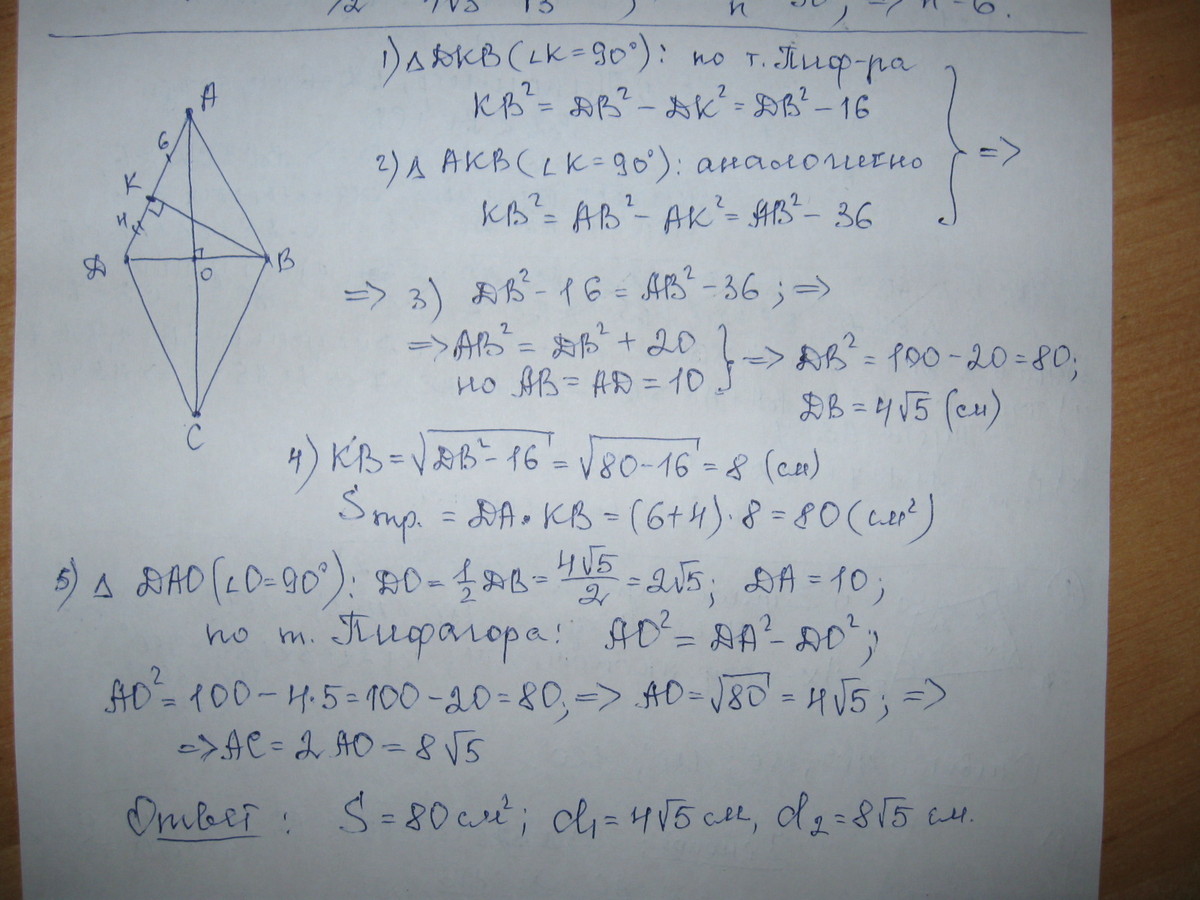 1) Δ DKB (∠K=90°): по т. Пиф-ра
KB² = DB² − DK² = DB² − 16
2) Δ AKB (∠K=90°): аналогично
KB² = AB² − AK² = AB² − 36
} =>
A
6
K
4
D
O
B
C
=> 3) DB² − 16 = AB² − 36; =>
=> AB² = DB² + 20
но AB = AD = 10
} => DB² = 100 − 20 = 80;
DB = 4√5 (см)
4) KB = √DB² − 16 = √80 − 16 = 8 (см)
Sтр. = DA · KB = (6+4) · 8 = 80 (см²)
5) Δ DAO (∠O=90°): DO = 1/2 DB = 4√5/2 = 2√5; DA = 10;
по т. Пифагора: AO² = DA² − DO²;
AO² = 100 − 4·5 = 100 − 20 = 80; => AO = √80 = 4√5; =>
=> AC = 2 AO = 8√5
Ответ: S = 80 см²; d₁ = 4√5 см, d₂ = 8√5 см.